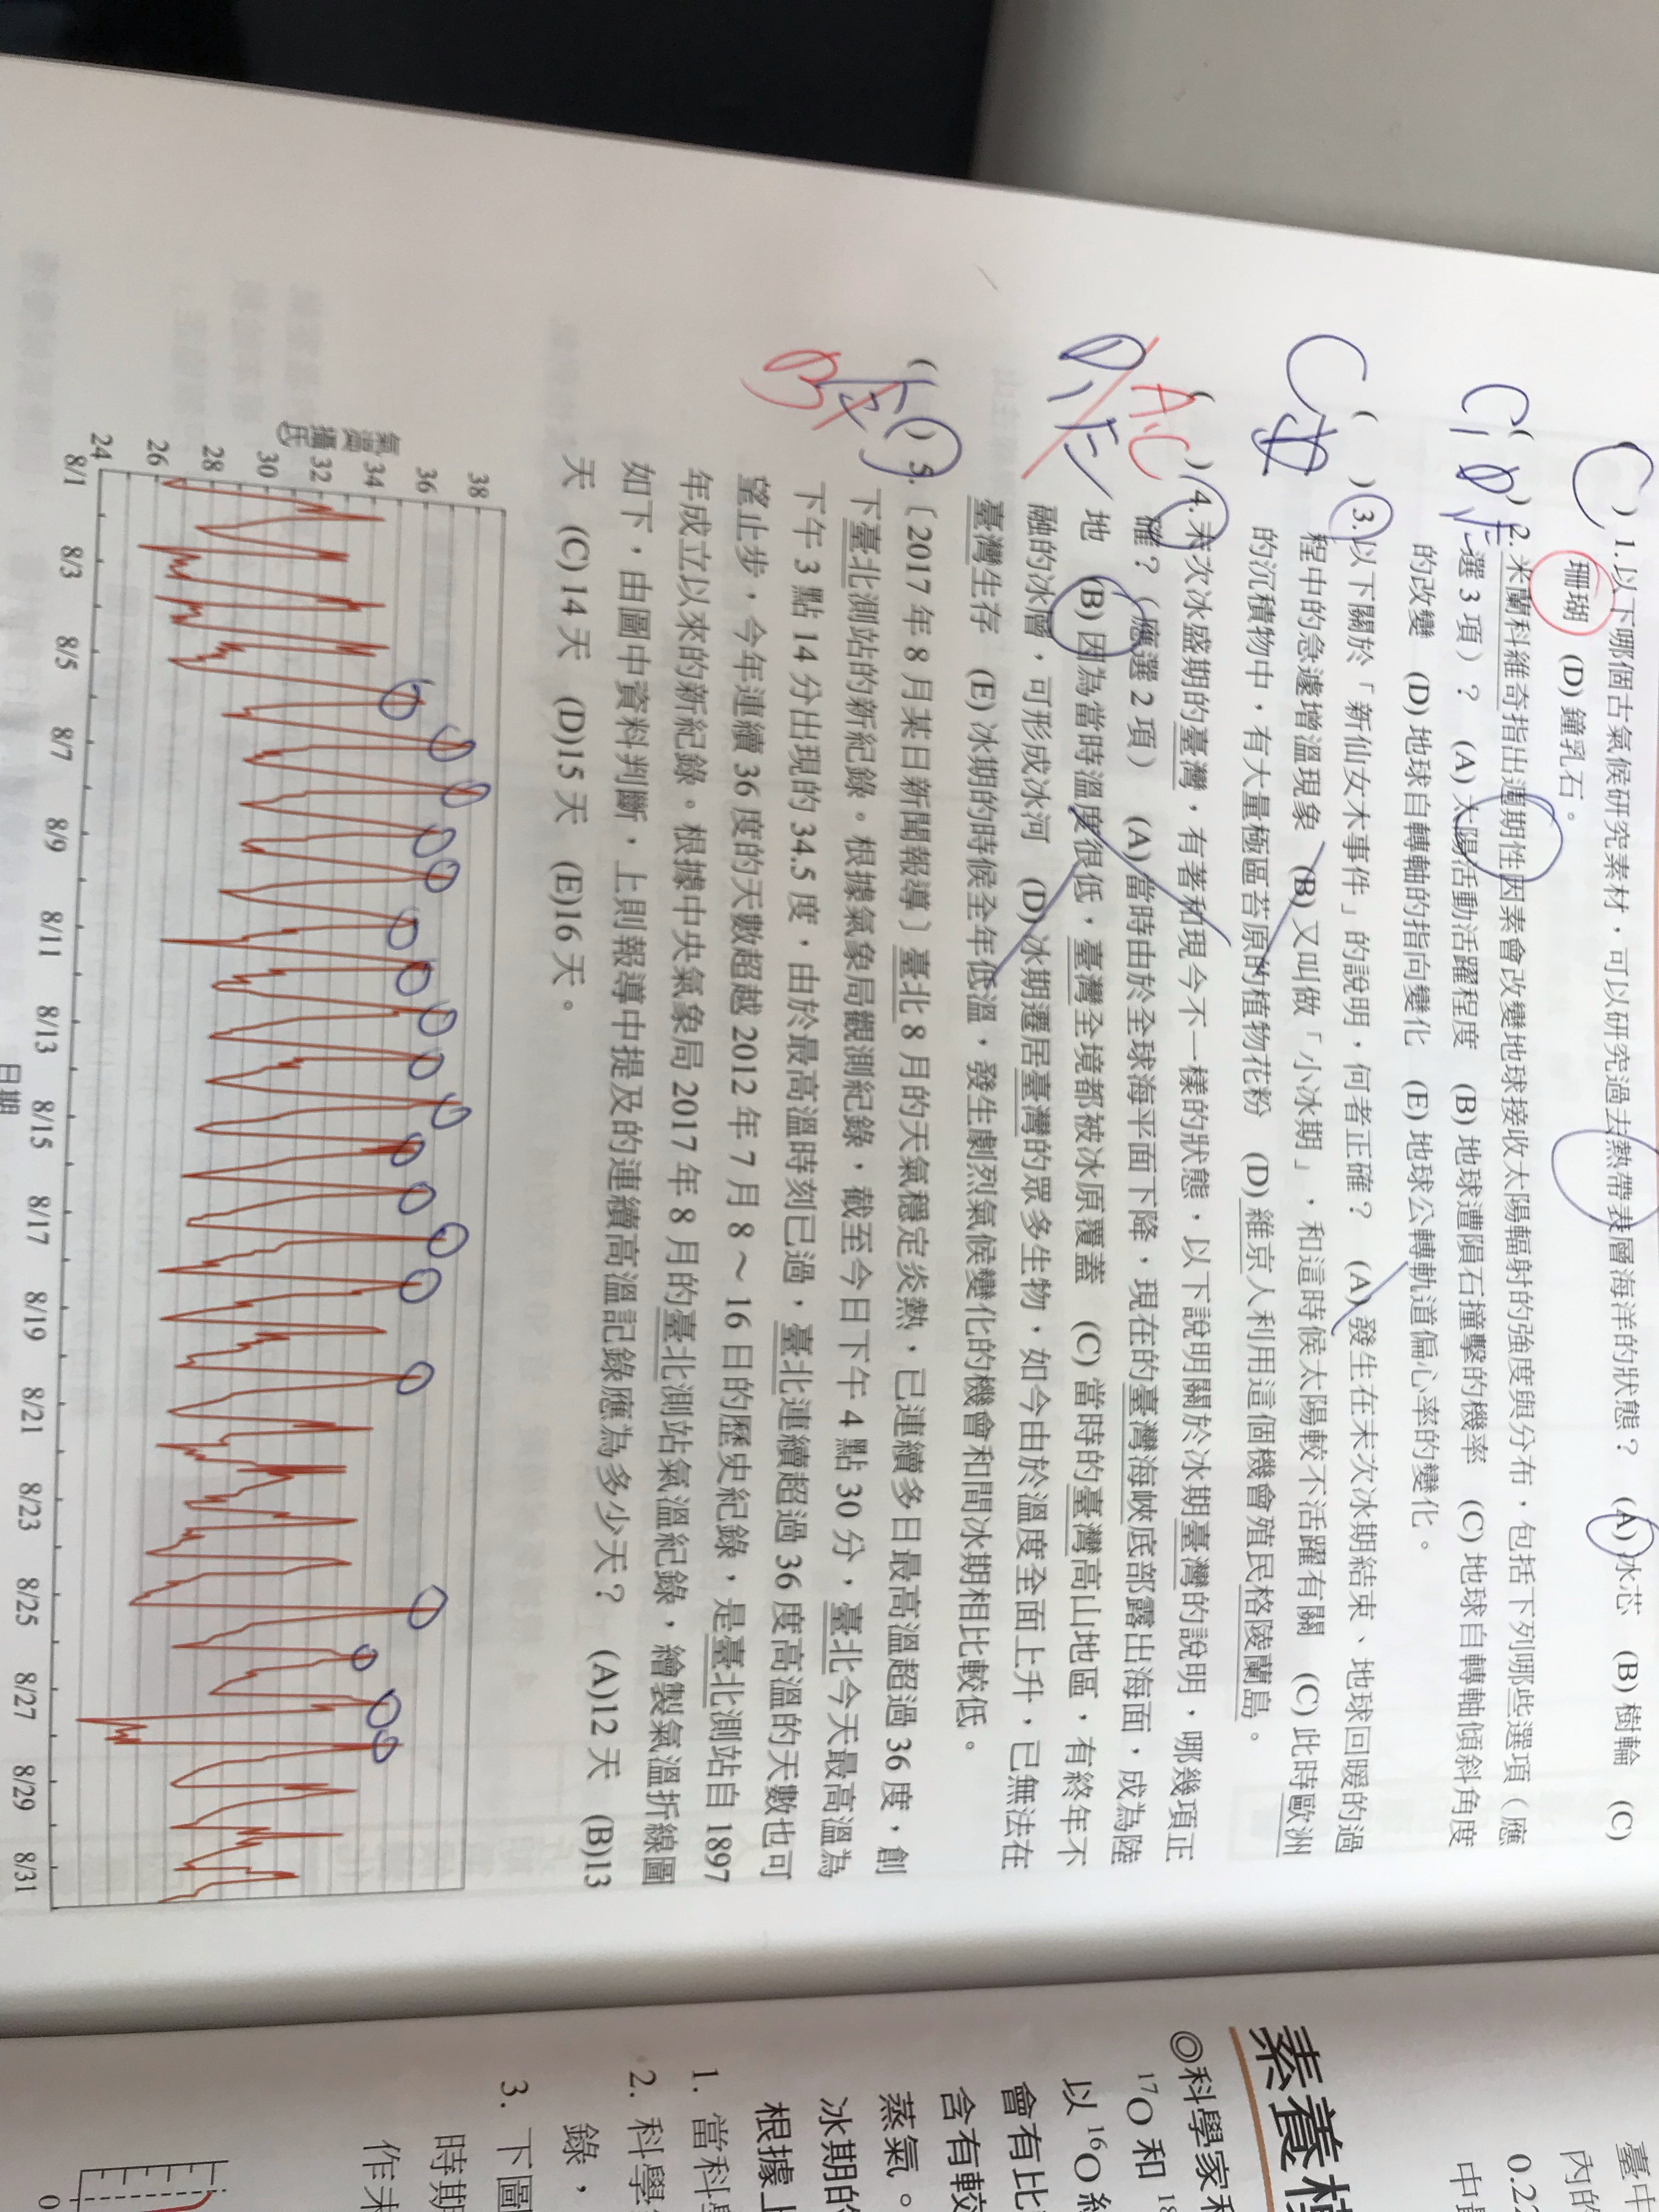 ( C ) 1.以下哪個古氣候研究素材，可以研究過去熱帶表層海洋的狀態？ (A) 冰芯 (B) 樹輪 (C)
珊瑚 (D) 鐘乳石。
( C,D,E ) 2.米蘭科維奇指出週期性因素會改變地球接收太陽輻射的強度與分布，包括下列哪些選項（應
選 3 項）？ (A) 太陽活動活躍程度 (B) 地球遭隕石撞擊的機率 (C) 地球自轉軸傾斜角度
的改變 (D) 地球自轉軸的指向變化 (E) 地球公轉軌道偏心率的變化。
( C ) 3.以下關於「新仙女木事件」的說明，何者正確？ (A) 發生在末次冰期結束、地球回暖的過
程中的急遽增溫現象 (B) 又叫做「小冰期」，和這時候太陽較不活躍有關 (C) 此時歐洲
的沉積物中，有大量極區苔原的植物花粉 (D) 維京人利用這個機會殖民格陵蘭島。
( D,E AC ) 4.末次冰盛期的臺灣，有著和現今不一樣的狀態，以下說明關於冰期臺灣的說明，哪幾項正
確？（應選 2 項） (A) 當時由於全球海平面下降，現在的臺灣海峽底部露出海面，成為陸
地 (B) 因為當時溫度很低，臺灣全境都被冰原覆蓋 (C) 當時的臺灣高山地區，有終年不
融的冰層，可形成冰河 (D) 冰期遷居臺灣的眾多生物，如今由於溫度全面上升，已無法在
臺灣生存 (E) 冰期的時候全年低溫，發生劇烈氣候變化的機會和間冰期相比較低。
( B ) 5.〔2017 年 8 月某日新聞報導〕臺北 8 月的天氣穩定炎熱，已連續多日最高溫超過 36 度，創
下臺北測站的新紀錄。根據氣象局觀測紀錄，截至今日下午 4 點 30 分，臺北今天最高溫為
下午 3 點 14 分出現的 34.5 度，由於最高溫時刻已過，臺北連續超過 36 度高溫的天數也可
望止步，今年連續 36 度的天數超越 2012 年 7 月 8～16 日的歷史紀錄，是臺北測站自 1897
年成立以來的新紀錄。根據中央氣象局 2017 年 8 月的臺北測站氣溫紀錄，繪製氣溫折線圖
如下，由圖中資料判斷，上則報導中提及的連續高溫記錄應為多少天？ (A)12 天 (B)13
天 (C) 14 天 (D)15 天 (E)16 天。
氣溫
攝氏
38
36
34
32
30
28
26
24
8/1 8/3 8/5 8/7 8/9 8/11 8/13 8/15 8/17 8/19 8/21 8/23 8/25 8/27 8/29 8/31
日期
臺中
內的
0.2
素養
◎科學家
17O 和 18
以 16O
會有比
含有較
蒸氣。
冰期的
根據上
1. 當科學
2. 科學
錄，
3. 下圖
時期
作未
0